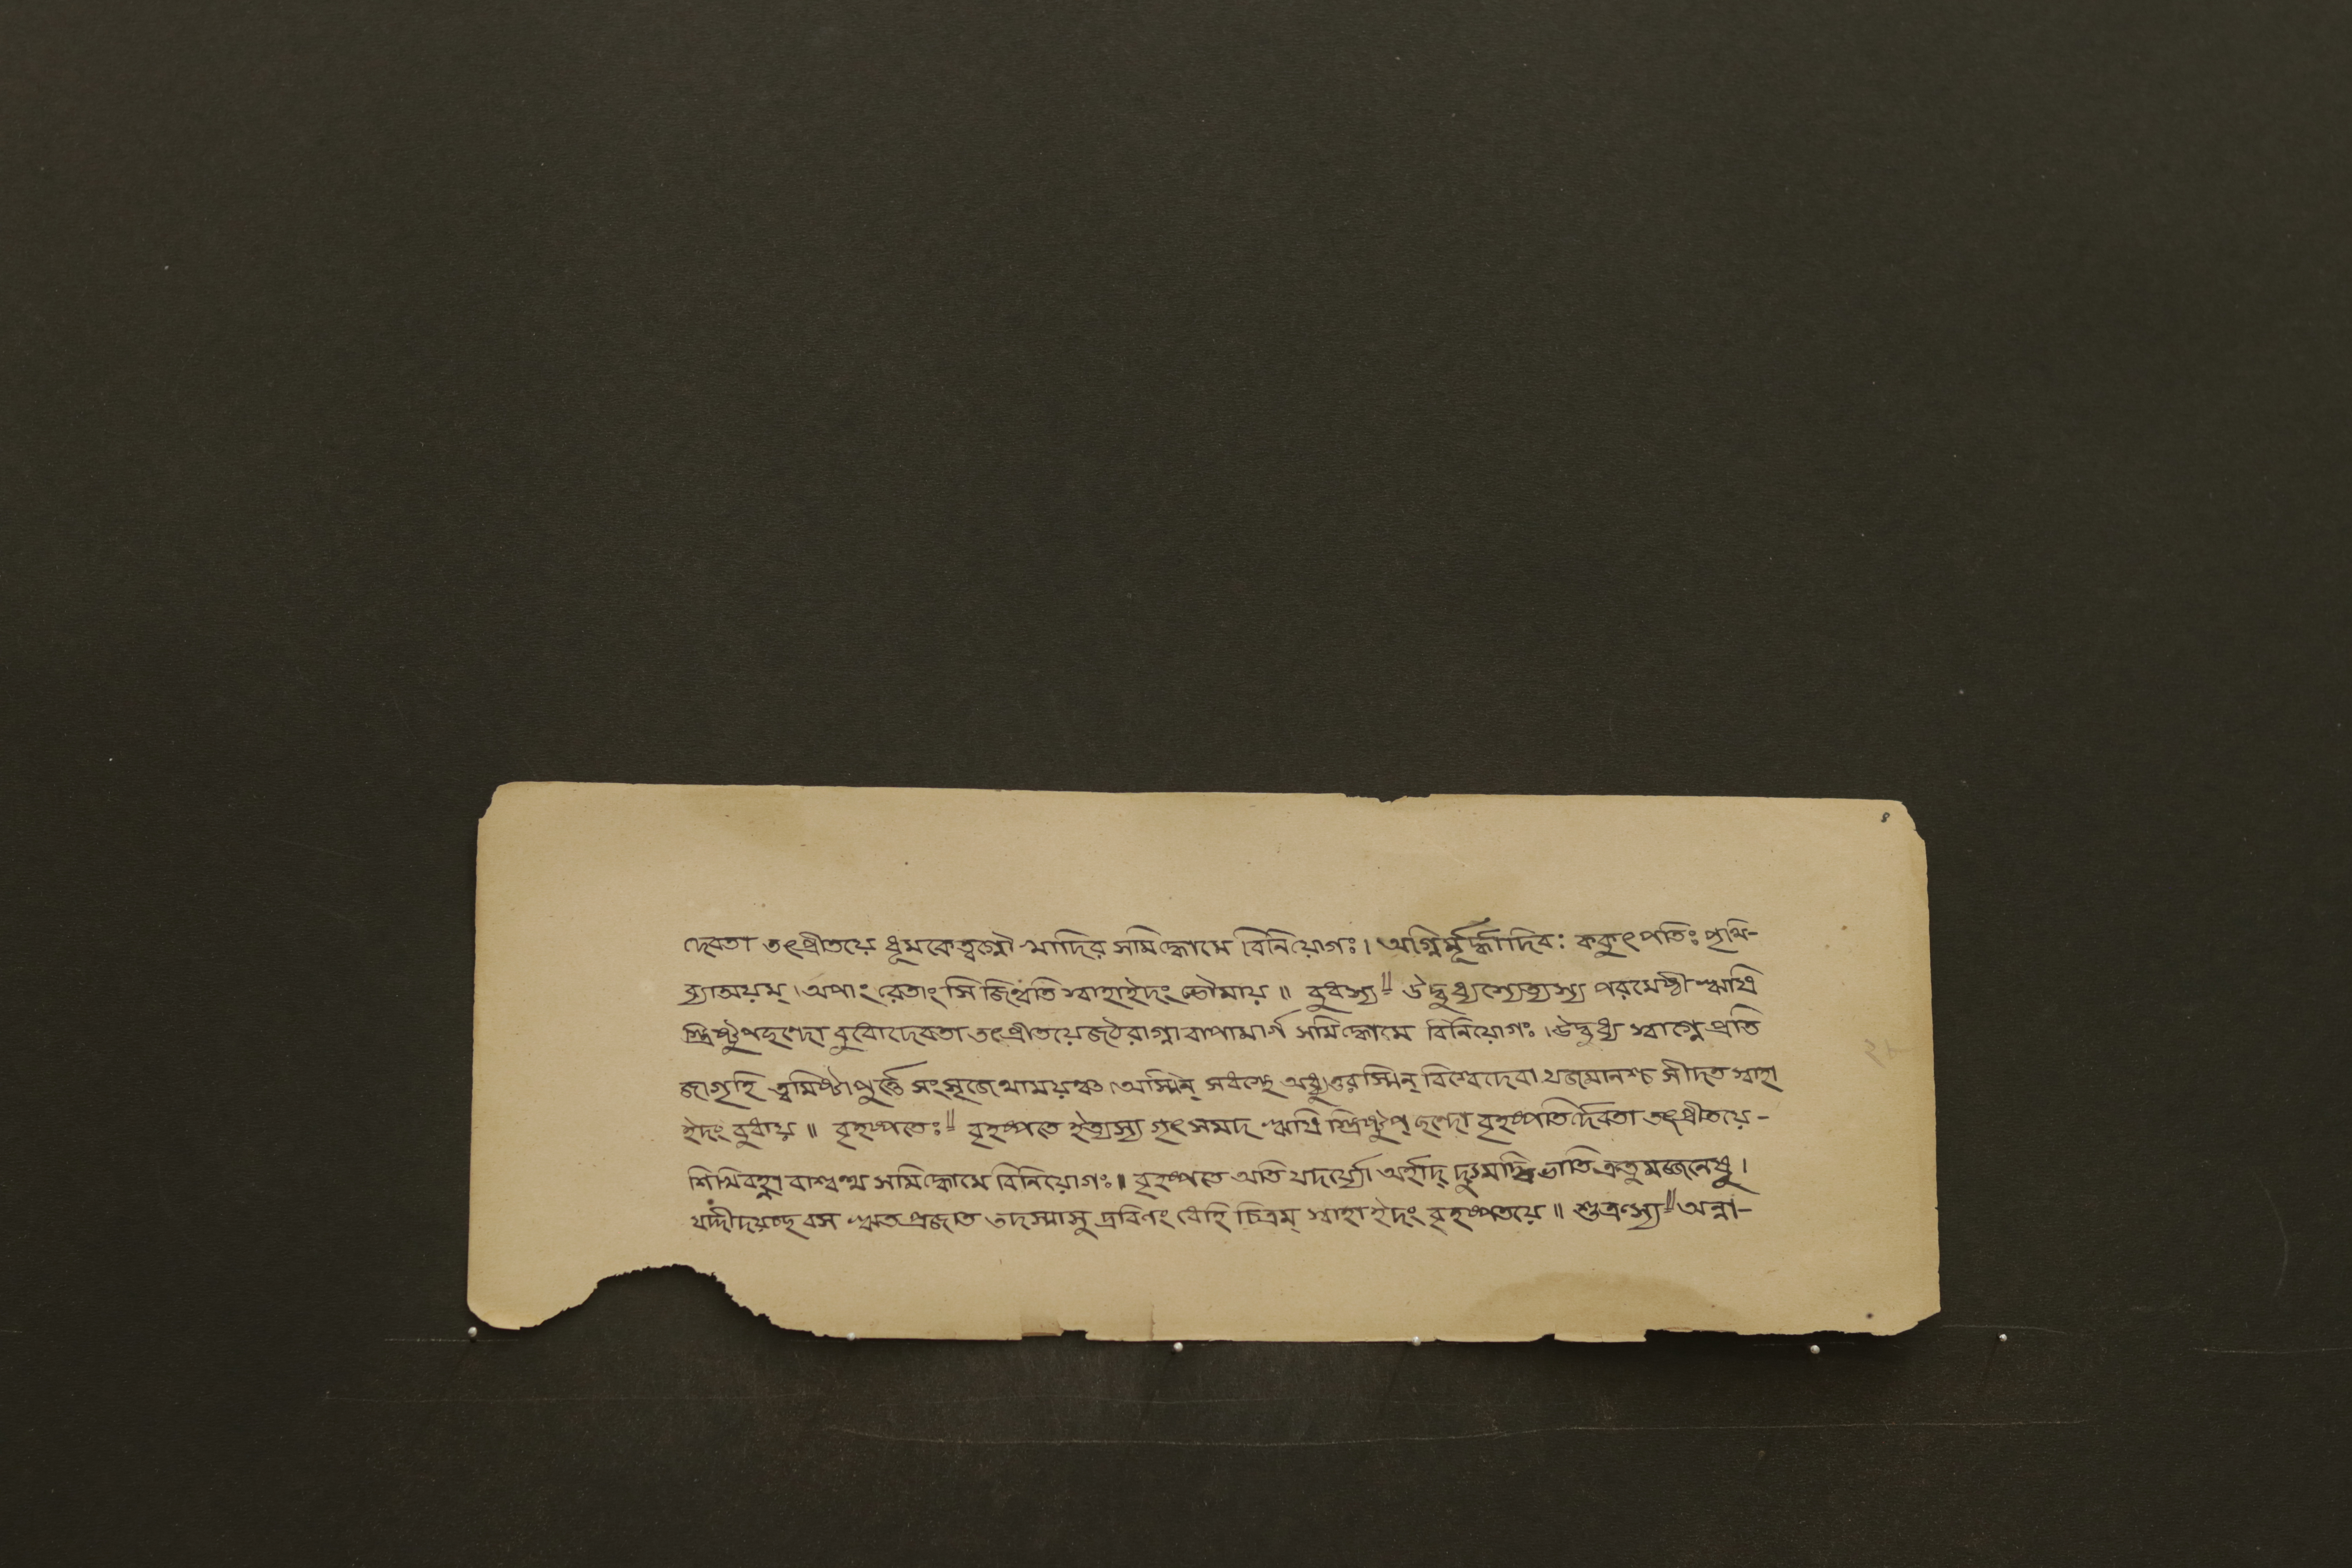 ৪
দেবতা তৎপ্রীতয়ে ধূমকেত্বগ্নৌ খাদির সমিদ্ধোমে বিনিয়োগঃ। অগ্নির্মূর্দ্ধাদিবঃ ককুৎপতিঃ পৃথি-
ব্যাঅয়ম্। অপাং রেতাংসি জিন্বতি স্বাহাইদং ভৌমায়॥ বুধস্য॥ উদ্বুধ্যস্যেত্যস্য পরমেষ্ঠী ঋষি
স্ত্রিষ্টুপছন্দো বুধোদেবতা তৎপ্রীতয়েজঠরাগ্নাবাপামার্গ সমিদ্ধোমে বিনিয়োগঃ। উদ্বুধ্য স্বাগ্নে প্রতি
জাগৃহি ত্বমিষ্টাপুর্ত্তে সংসৃজেথাময়ঞ্চ। অস্মিন্ সধস্থে অধ্যুত্তরস্মিন্ বিশ্বেদেবা যজমানশ্চ সীদত স্বাহা
ইদং বুধায়॥ বৃহস্পতেঃ॥ বৃহস্পতে ইত্যস্য গৃৎসমদ ঋষি স্ত্রিষ্টুপ্ ছন্দো বৃহস্পতির্দেবতা তৎপ্রীতয়ে-
শিখিবহ্না বাশ্বত্থ সমিদ্ধোমে বিনিয়োগঃ॥ বৃহস্পতে অতি যদর্য্যো অর্হাদ্ দ্যুমদ্বিভাতি ক্রতুমজ্জনেষু।
যদ্দীদয়চ্ছবস ঋত প্রজাত তদস্মাসু দ্রবিণং ধেহি চিত্রম্ স্বাহা ইদং বৃহস্পতয়ে॥ শুক্রস্য॥ অন্না-